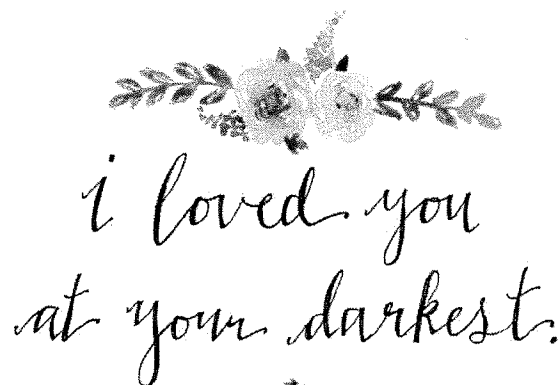 i loved you
at your darkest.